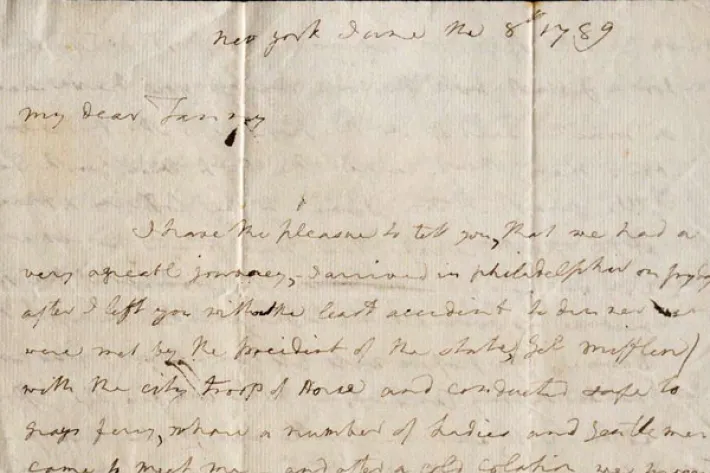 New york June the 8th 1789
my dear Fanny
I have the pleasure to tell you, that we had a
very agreable journey, - I arrived in philadelphia on fryday
after I left you without the least accident to dinner
were met by the president of the state, Gel miflin)
with the city troop of Horse and conducted safe to
grays ferry, whare a number of Ladies and Gentlemen
came to meet me and after a cold colation we